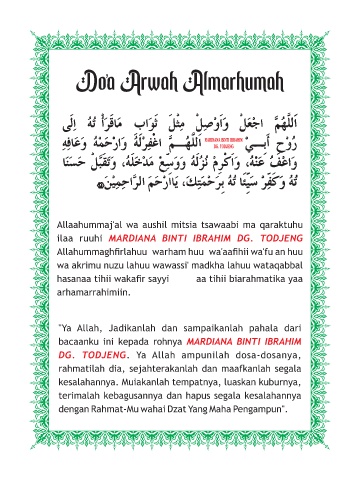 Do'a Arwah Almarhumah
اَللّٰهُمَّ اجْعَلْ وَاَوْصِلْ مِثْلَ ثَوَابِ مَاقَرَأْ تُهُ اِلَى
رُوْحِ أَبِـــيْ MARDIANA BINTI IBRAHIM DG. TODJENG اَللّٰهُـــمَّ اغْفِرْلَهُ وَارْحَمْهُ وَعَافِهِ
وَاعْفُ عَنْهُ، وَاَكْرِمْ نُزُلَهُ وَوَسِّعْ مَدْخَلَهُ، وَتَقَبَّلْ حَسَنَا
تُهُ وَكَفِّرْ سَيِّئَا تُهُ بِرَحْمَتِكَ، يَآأَرْحَمَ الرَّاحِمِيْنَ
Allaahummaj'al wa aushil mitsia tsawaabi ma qaraktuhu
ilaa ruuhi MARDIANA BINTI IBRAHIM DG. TODJENG
Allahummaghfirlahuu warham huu wa'aafihii wa'fu an huu
wa akrimu nuzu lahuu wawassi' madkha lahuu wataqabbal
hasanaa tihii wakafir sayyi aa tihii biarahmatika yaa
arhamarrahimiin.
"Ya Allah, Jadikanlah dan sampaikanlah pahala dari
bacaanku ini kepada rohnya MARDIANA BINTI IBRAHIM
DG. TODJENG. Ya Allah ampunilah dosa-dosanya,
rahmatilah dia, sejahterakanlah dan maafkanlah segala
kesalahannya. Muiakanlah tempatnya, luaskan kuburnya,
terimalah kebagusannya dan hapus segala kesalahannya
dengan Rahmat-Mu wahai Dzat Yang Maha Pengampun".